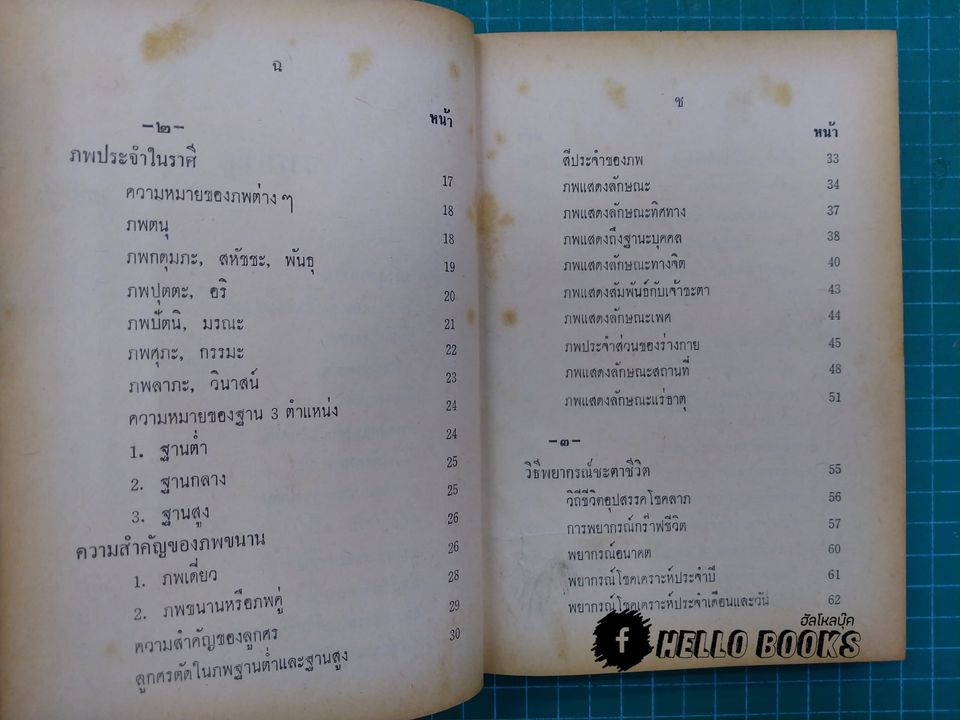 ฉ
หน้า
–๒–
ภพประจำในราศี 17
ความหมายของภพต่าง ๆ 18
ภพตนุ 18
ภพกดุมภะ, สหัชชะ, พันธุ 19
ภพปุตตะ, อริ 20
ภพปัตนิ, มรณะ 21
ภพศุภะ, กรรมะ 22
ภพลาภะ, วินาสน์ 23
ความหมายของฐาน 3 ตำแหน่ง 24
1. ฐานต่ำ 24
2. ฐานกลาง 25
3. ฐานสูง 25
ความสำคัญของภพขนาน 26
1. ภพเดี่ยว 26
2. ภพขนานหรือภพคู่ 28
ความสำคัญของลูกศร 29
ลูกศรตัดในภพฐานต่ำและฐานสูง 30
ช
หน้า
สีประจำของภพ 33
ภพแสดงลักษณะ 34
ภพแสดงลักษณะทิศทาง 37
ภพแสดงถึงฐานะบุคคล 38
ภพแสดงลักษณะทางจิต 40
ภพแสดงสัมพันธ์กับเจ้าชะตา 43
ภพแสดงลักษณะเพศ 44
ภพประจำส่วนของร่างกาย 45
ภพแสดงลักษณะสถานที่ 48
ภพแสดงลักษณะแร่ธาตุ 51
–๓–
วิธีพยากรณ์ชะตาชีวิต 55
วิถีชีวิตอุปสรรคโชคลาภ 56
การพยากรณ์กร๊าฟชีวิต 57
พยากรณ์อนาคต 60
พยากรณ์โชคเคราะห์ประจำปี 61
พยากรณ์โชคเคราะห์ประจำเดือนและวัน 62
ฮัลโหลบุ๊ค
f HELLO BOOKS